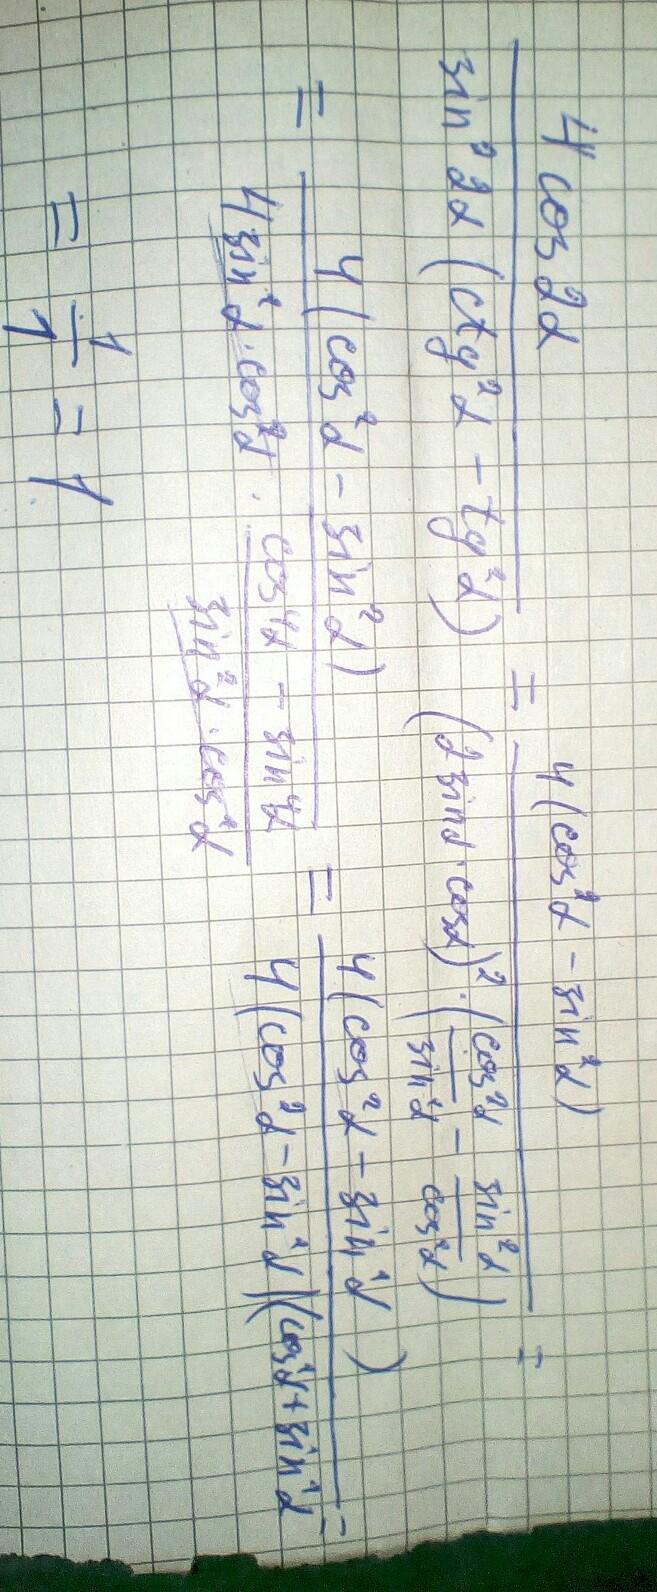 4 cos2α / sin²2α (ctg²α - tg²α) = 4(cos²α - sin²α) / (2sinα · cosα)² · (cos²α / sin²α - sin²α / cos²α) =
= 4(cos²α - sin²α) / 4sin²α · cos²α · cos⁴α - sin⁴α / sin²α · cos²α = 4(cos²α - sin²α) / 4(cos²α - sin²α)(cos²α + sin²α =
= 1 / 1 = 1.